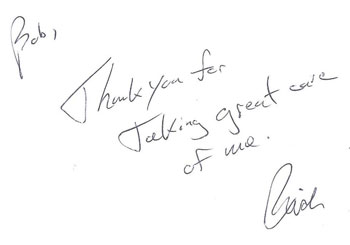 Bob,
Thank you for
Taking great care
of me.